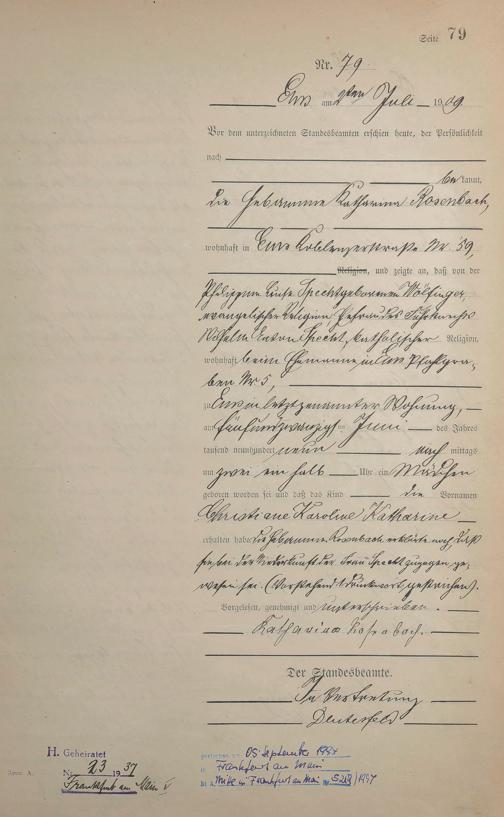 Seite 79
Nr. 79
Ems am 2ten Juli 1909
Vor dem unterzeichneten Standesbeamten erschien heute, der Persönlichkeit
nach
bekannt,
die Hebamme Katharina Rosenbach,
wohnhaft in Ems Koblenzerstraße Nr. 59,
Religion, und zeigte an, daß von der
Philippine Luise Specht geborenen Wölfinger,
evangelischer Religion Ehefrau des Fuhrknechts
Wilhelm Anton Specht, katholischer Religion,
wohnhaft beim Ehemanne in Ems Pfahlgra-
ben Nr 5,
zu Ems in letztgenannter Wohnung,
am fünfundzwanzigsten Juni des Jahres
tausend neunhundert neun nach mittags
um zwei ein halb Uhr ein Mädchen
geboren worden sei und daß das Kind die Vornamen
Christiane Karoline Katharine
erhalten habe. Die Hebamme Rosenbach erklärte noch, daß
sie bei der Niederkunft der Frau Specht zugegen ge-
wesen sei. (Vorstehend 1 Druckwort gestrichen).
Vorgelesen, genehmigt und unterschrieben.
Katharina Rosenbach.
Der Standesbeamte.
In Vertretung
H. Geheiratet
Nr. 23 1937
Frankfurt am Main V
gestorben am 05. September 1997
in Frankfurt am Main
Mitte in Frankfurt am Main Nr. 5219/1997